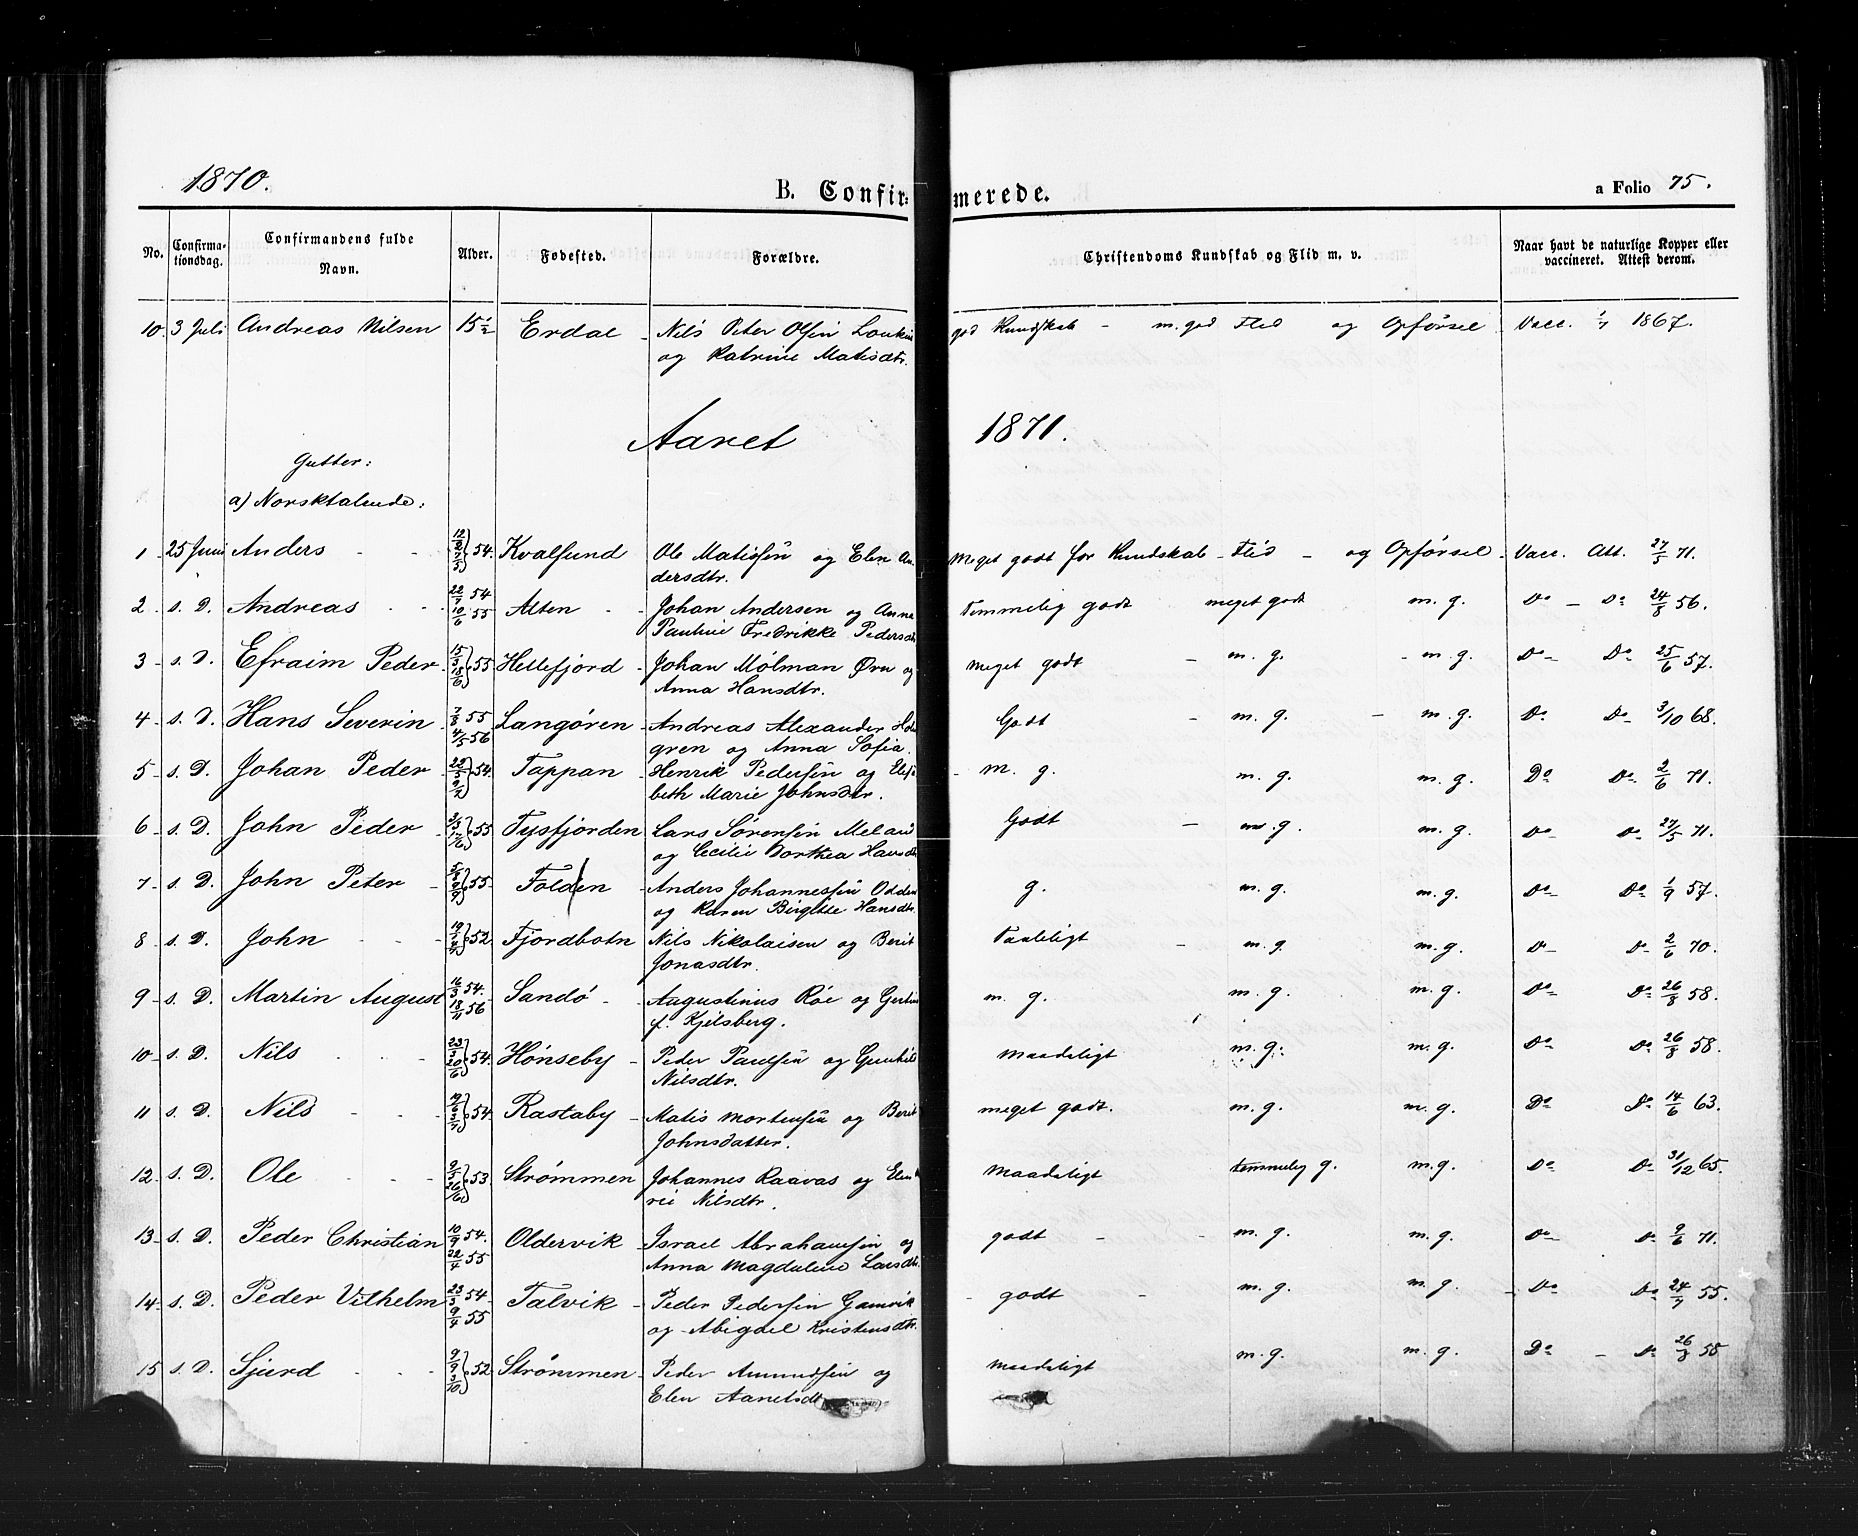 1870.
B. Confirmerede.
a Folio 75.
No. Confirmationsdag. Confirmandens fulde Navn. Alder. Fødested. Forældre. Christendoms Kundskab og Flid m. v. Naar havt de naturlige Kopper eller vaccineret. Attest derom.
10. 3 Juli Andreas Nilsen 15½ Erdal - Nils Peter Olsen god Kundskab - m. god Flid og Opførsel. Vacc. 1/7 1867.
og Katrine Matisdtr.
Aaret 1871.
Gutter:
a) Norsktalende:
1 - 25 Juni Anders - - 54. Kvalsund Ole Matissen og Elen An- Meget godt for Kundskab - Flid - og Opførsel. Vacc. Att. 27/5 71.
dersdtr.
2 - s. D. Andreas - - 22/7 54 10/6 55 Alten - - Johan Andersen og Anna Temmelig godt meget godt m. g. Do - Do 24/8 56.
Pauline Fredrikke Pedersdtr
3 - s. D. Efraim Peder - 15/3 18/6 } 55 Hellefjord - Johan Mølman Ørn og meget godt - m. g. - m. g. Do - Do 25/6 57.
Anna Hansdtr.
4 - s. D. Hans Severin - 7/8 55 4/5 56 Langøren - Andreas Alexander Godt - m. g. - m. g. Do Do - 3/10 68.
gren og Anna Sofia.
5 - s. D. Johan Peder - 54. Tappan - Henrik Pedersen og Elisa- - m. g. m. g. m. g. Do Do - 2/6 71.
beth Marie Johnsdtr.
6 - s. D. John Peder - 55 Tysfjorden - Lars Sørensen Meland Godt - m. g. m. g. Do - Do - 27/5 71.
og Cecilie Dorthea Hansdtr
7 - s. D. John Peter - 55. Folden - Anders Johannessen g. m. g. m. g. Do - Do 1/9 57.
og Karen Birgitte Hansdtr.
8 - s. D. John - - 52. Fjordbotn - Nils Nikolaisen og Berit Taaleligt - m. g. m. g. Do - Do 2/6 70.
Jonasdtr.
9 - s. D. Martin August 16/3 54. 18/11 56 Sandø - Augustinus Røe og m. g. m. g. m. g. Do - Do 26/8 58.
f. Kjelsberg.
10 - s. D. Nils - - 23/3 20/6 } 54. Hønseby - Peder Paulsen og Gunhild maadeligt m. g. m. g. Do Do 26/8 58.
Nilsdtr.
11 - s. D. Nils - - 54. Rastaby - Matis Mortensen og Berit meget godt. m. g. m. g. Do Do 14/6 63.
Johnsdatter.
12 - s. D. Ole - - 53 Strømmen Johannes Raavas og Elen Ma- maadeligt temmelig g. m. g. Do Do - 31/12 65.
rie Nilsdtr.
13 - s. D. Peder Christian 10/9 54. 22/4 55 Oldervik - Israel Abrahamsen og godt - - m. g. m. g. Do - Do 9/6 71.
Anna Magdalene Larsdtr.
14 - s. D. Peder Vilhelm 23/3 54 - 9/4 55 Talvik - Peder Pedersen Gamvik - godt - m. g. m. g. - Do - Do 24/7 55.
og Abigael Kristensdtr.
15 s. D. Sjurd - - 9/9 3/10 } 52 Strømmen - Peder Amundsen og maadeligt m. g. m. g. Do - Do 26/8 58
Elen Aanetsdtr